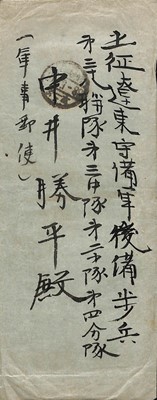 出征遼東守備軍後備歩兵
第三十八聯隊第三中隊第二小隊第四分隊
中井勝平殿
(軍事郵便)